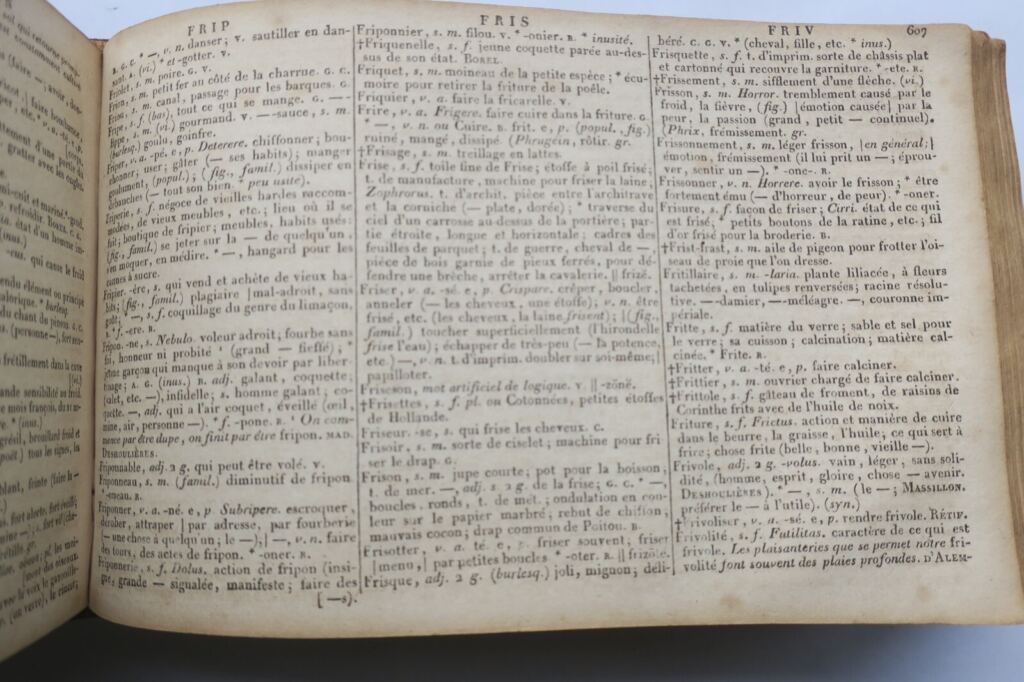 FRIP
FRIS
FRIV
607
B. G. C. * —, v. n. danser; v. sautiller en dan-
sant. A. (vi.) * et-gotter. v.
Friolet, s. m. poire. G. V.
Frion, s. m. petit fer au côté de la charrue. G. C.
s. m. canal, passage pour les barques. G.
Fripe, s. f. (bas), tout ce qui se mange. G. —
s. m. (vi.) gourmand. v. —-sauce, s. m.
(burlesq.) goulu, goinfre.
Friper, v. a. -pé. e, p. Deterere. chiffonner; bou-
chonner, user; gâter (— ses habits); manger
goulument, (popul.); (fig., famil.) dissiper en
débauches (— tout son bien. * peu usité).
Friperie, s. f. négoce de vieilles hardes raccom-
modées, de vieux meubles, etc.; lieu où il se
fait; boutique de fripier; meubles, habits usés:
(fig., famil.) se jeter sur la — de quelqu'un.
s'en moquer, en médire. * —, hangard pour les
cannes à sucre.
Fripier. -ère, s. qui vend et achète de vieux ha-
bits; (fig., famil.) plagiaire |mal-adroit, sans
goût; * —, s. f. coquillage du genre du limaçon.
* f. -ere. R.
Fripon. -ne, s. Nebulo. voleur adroit; fourbe sans
foi, honneur ni probité (grand — fieffé); *
jeune garçon qui manque à son devoir par liber-
tinage; A. G. (inus.) R. adj. galant, coquette,
(valet, etc. —), infidelle; s. homme galant; co-
quette. —, adj. qui a l'air coquet, éveillé (œil,
mine, air, personne —). * f. -pone. R. ' On com-
mence par être dupe, on finit par être fripon. MAD.
DESHOULIÈRES.
Friponnable, adj. 2 g. qui peut être volé. V.
Friponneau, s. m. (famil.) diminutif de fripon.
* -oneau. R.
Friponner, v. a. -né. e, p Subripere. escroquer,
dérober, attraper | par adresse, par fourberie
(— une chose à quelqu'un; le —);| —, v. n. faire
des tours, des actes de fripon. * -oner. R.
Friponerie, s. f. Dolus. action de fripon (insi-
gne, grande — signalée, manifeste; faire des
[—s).
Friponnier, s. m. filou. v. * -onier. R. * inusité.
†Friquenelle, s. f. jeune coquette parée au-des-
sus de son état. BOREL.
Friquet, s. m. moineau de la petite espèce; * écu-
moire pour retirer la friture de la poêle.
Friquier, v. a. faire la fricarelle. V.
Frire, v. a. Frigere. faire cuire dans la friture. G.
* —, v. n. ou Cuire. R. frit. e, p. (popul., fig.)
ruiné, mangé, dissipé. (Phrugein, rôtir. gr.
†Frisage, s. m. treillage en lattes.
Frise, s. f. toile fine de Frise; étoffe à poil frisé;
t. de manufacture, machine pour friser la laine;
Zophrorus. t. d'archit. pièce entre l'architrave
et la corniche (— plate, dorée); * traverse du
ciel d'un carrosse au-dessus de la portière; par-
tie étroite, longue et horizontale; cadres des
feuilles de parquet; t. de guerre, cheval de —,
pièce de bois garnie de pieux ferrés, pour dé-
fendre une brèche, arrêter la cavalerie. || frizé.
Friser, v. a. -sé. e, p. Crispare. crêper, boucler,
anneler (— les cheveux, une étoffe); v. n. être
frisé, etc. (les cheveux, la laine frisent); |(fig.,
famil.) toucher superficiellement (l'hirondelle
frise l'eau); échapper de très-peu (— la potence,
etc.) —, v. n. t. d'imprim. doubler sur soi-même;|
papilloter.
Friseson, mot artificiel de logique. V || -zônê.
†Frisettes, s. f. pl. ou Cotonnées, petites étoffes
de Hollande.
Friseur. -se, s. qui frise les cheveux. C.
Frisoir, s. m. sorte de ciselet; machine pour fri
ser le drap. G.
Frison, s. m. jupe courte; pot pour la boisson,
t. de mer. —, adj. s. 2 g. de la frise; G. C. * —,
boucles. ronds, t. de mét.; ondulation en cou-
leur sur le papier marbré; rebut de chiffon;
mauvais cocon; drap commun de Poitou. B.
Frisotter, v. a. té. e, p. friser souvent; friser
|menu,| par petites boucles * -oter. R. || frizôtê.
Frisque, adj. 2 g. (burlesq.) joli, mignon; déli-
béré. C. G. V. * (cheval, fille, etc. * inus.)
Frisquette, s. f. t. d'imprim. sorte de châssis plat
et cartonné qui recouvre la garniture. * -ete. R.
†Frissement, s. m. sifflement d'une flèche. (vi.)
Frisson, s. m. Horror. tremblement causé par le
froid, la fièvre, (fig.) |émotion causée| par la
peur, la passion (grand, petit — continuel).
(Phrix, frémissement. gr.
Frissonnement, s. m. léger frisson, |en général;|
émotion, frémissement (il lui prit un —; éprou-
ver, sentir un —). * -one-. R.
Frissonner, v. n. Horrere. avoir le frisson; * être
fortement ému (— d'horreur, de peur). * -oner.
Frisure, s. f. façon de friser; Cirri. état de ce qui
est frisé, * petits boutons de la ratine, etc.; fil
d'or frisé pour la broderie. B.
†Frist-frast, s. m. aile de pigeon pour frotter l'oi-
seau de proie que l'on dresse.
Fritillaire, s. m. -laria. plante liliacée, à fleurs
tachetées, en tulipes renversées; racine résolu-
tive. —-damier, —-méleagre. —, couronne im-
périale.
Fritte, s. f. matière du verre; sable et sel pour
le verre; sa cuisson; calcination; matière cal-
cinée. * Frite. R.
†Fritter, v. a. -té. e, p. faire calciner.
†Frittier, s. m. ouvrier chargé de faire calciner.
†Frittole, s. f. gâteau de froment, de raisins de
Corinthe frits avec de l'huile de noix.
Friture, s. f. Frictus. action et manière de cuire
dans le beurre, la graisse, l'huile; ce qui sert à
frire; chose frite (belle, bonne, vieille —).
Frivole, adj. 2 g. -volus. vain, léger, sans soli-
dité, (homme, esprit, gloire, chose — avenir.
DESHOULIÈRES). * —, s. m. (le —; MASSILLON.
préférer le — à l'utile). (syn.)
†Frivoliser, v. a. -sé. e, p. rendre frivole. RÉTIF.
Frivolité, s. f. Futilitas. caractère de ce qui est
frivole. Les plaisanteries que se permet notre fri-
volité font souvent des plaies profondes. D'ALEM-